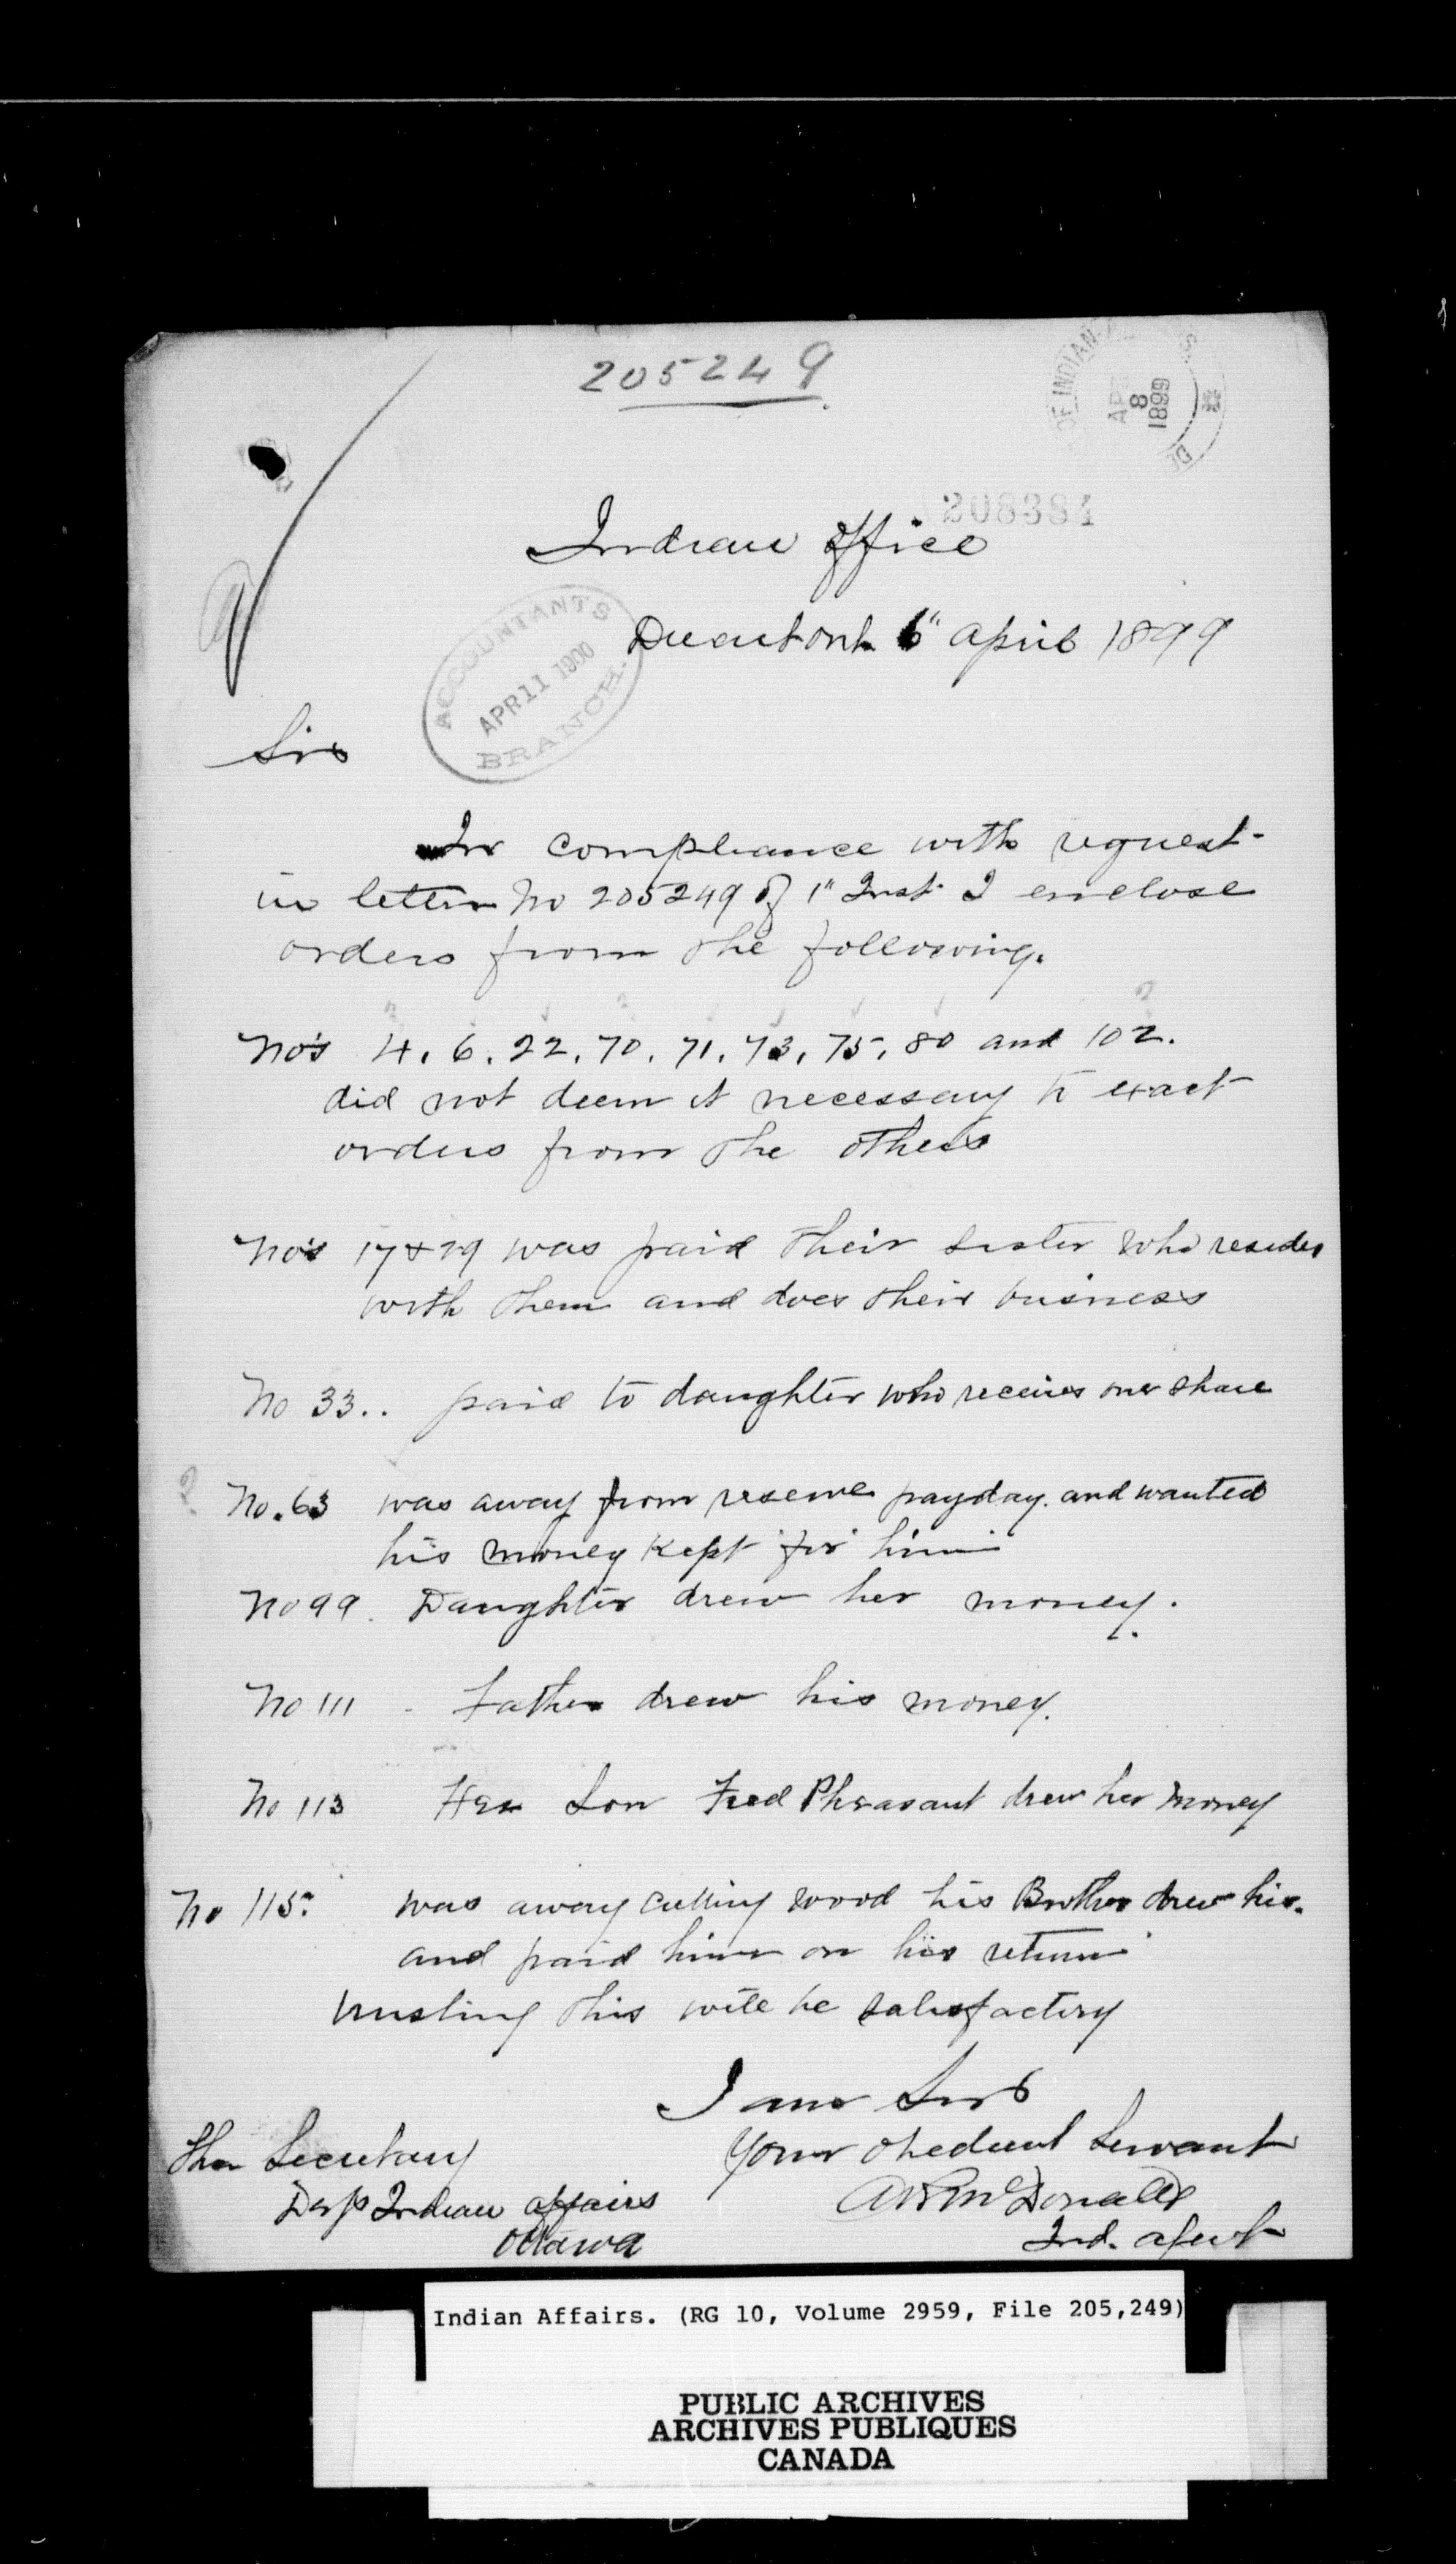 205249
OF INDIAN
APR 8 1899
208384
Indian Office
ACCOUNTANT'S
APR 11 1900
BRANCH.
Ont. 6" April 1899
Sir
In compliance with request
in letter No 205249 of 1" Inst I enclose
orders from the following.
No's 4. 6. 22. 70. 71. 73. 75. 80 and 102.
did not deem it necessary to exact
orders from the others
No's 17 & 79 was paid their sister who resides
with them and does their business
No 33.. paid to daughter who receives one share
? No. 63 was away from reserve payday. and wanted
his money kept for him
No 99. Daughter drew her money.
No 111 - Father drew his money.
No 113 Her Son Fred Pheasant drew her money
No 115. was away cutting wood his Brother drew his.
and paid him on his return
trusting this will be satisfactory
I am Sir
Your obedient Servant
The Secretary
Dept Indian Affairs
Ottawa
McDonald
Ind. Agent
Indian Affairs. (RG 10, Volume 2959, File 205,249)
PUBLIC ARCHIVES
ARCHIVES PUBLIQUES
CANADA